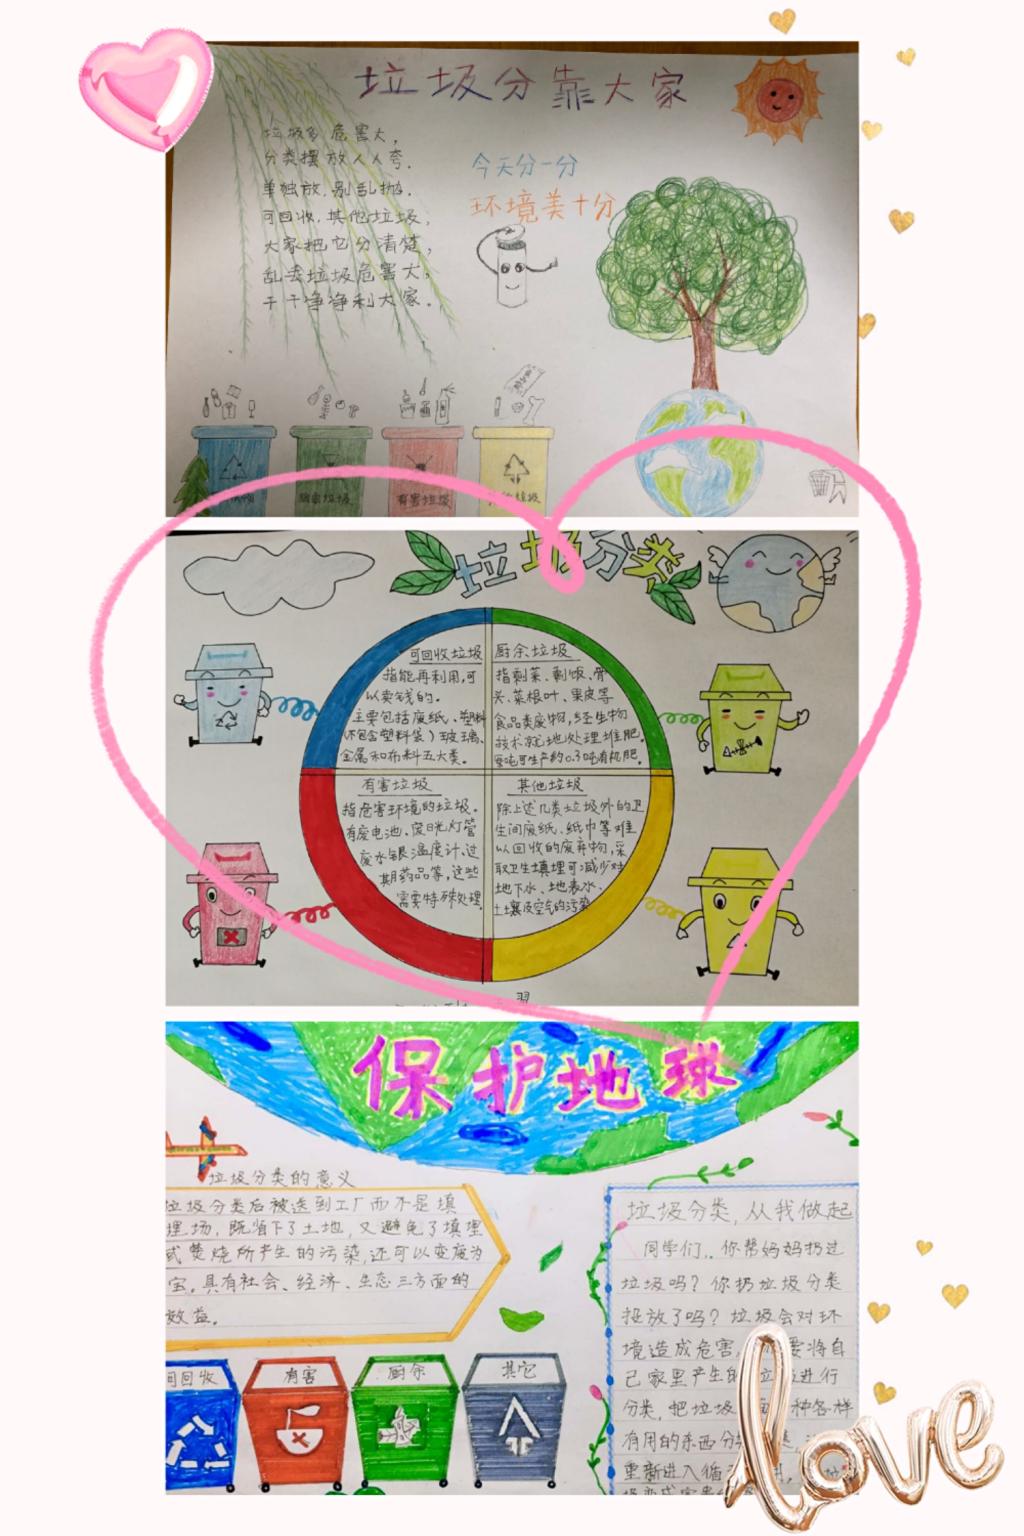 垃圾分靠大家
垃圾多危害大,
分类摆放人人夸.
单独放,别乱抛.
可回收,其他垃圾,
大家把它分清楚,
乱丢垃圾危害大,
干干净净利大家.
今天分一分
环境美十分
有害垃圾
垃圾分类
可回收垃圾
指能再利用,可
以卖钱的.
主要包括废纸、塑料
(不包含塑料袋)玻璃、
金属和布料五大类.
厨余垃圾
指剩菜、剩饭、骨
头、菜根叶、果皮等
食品类废物,经生物
技术就地处理堆肥,
每吨可生产约0.3吨有机肥.
有害垃圾
指危害环境的垃圾.
有废电池、废日光灯管
废水银温度计、过
期药品等,这些
需要特殊处理.
其他垃圾
除上述几类垃圾外的卫
生间废纸、纸巾等难
以回收的废弃物,采
取卫生填埋可减少对
地下水、地表水、
土壤及空气的污染
保护地球
垃圾分类的意义
垃圾分类后被送到工厂而不是填
埋场,既省下了土地,又避免了填埋
或焚烧所产生的污染,还可以变废为
宝,具有社会、经济、生态三方面的
效益.
回收
有害
厨余
其它
垃圾分类,从我做起
同学们,你帮妈妈扔过
垃圾吗?你扔垃圾分类
投放了吗?垃圾会对环
境造成危害,要将自
己家里产生的垃圾进行
分类,把垃圾种各样
有用的东西分类,
重新进入循
love